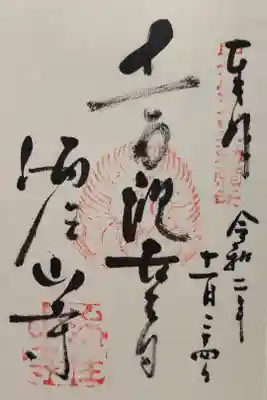 奉拝
令和二年
十一月二十四日
十一面観世音
海住山寺